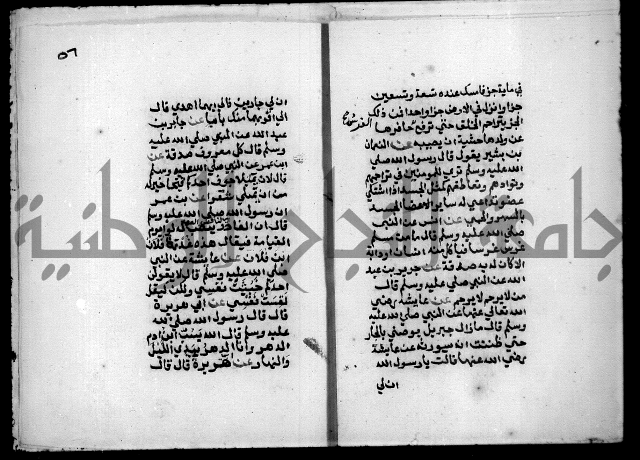 في ماية جزء فامسك عنده تسعة وتسعين
جزا وانزل في الارض جزا واحدا فمن ذلك
الجزء يتراحم الخلق حتى ترفع حافرها
عن ولدها خشية ان يصيبه عن النعمان
بن بشير يقول قال رسول الله صلى
الله عليه وسلم ترى المومنين في تراحمهم
وتوادهم وتعاطفهم كمثل الجسد اذا اشتكى
عضو تداعى له ساير الاعضا الجسد
بالسهر والحمى عن انس عن النبي
صلى الله عليه وسلم قال ما من مسلم
غرس غرسا فاكل منه انسان او دابة
الا كان له به صدقة عن جرير بن عبد
الله عن النبي صلى عليه وسلم قال
من لا يرحم لا يرحم عن عايشة رضي
الله تعالى عنها عن النبي صلى الله عليه
وسلم قال ما زال جبريل يوصني بالجار
حتى ظننت ان سيورثه عن عايشة
رضي الله عنها قالت يا رسول الله
ان لي
٥٦
ان لي جارين فالى ايهما اهدي قال
الى اقربهما منك بابا عن جابر بن
عبد الله عن النبي صلى الله عليه
وسلم قال كل معروف صدقة عن
ابن عمر عن النبي صلى الله عليه وسلم
قال لان يمتلا جوف احدكم قيحا خير له
من ان يمتلي شعرا عن بن عمر
ان رسول الله صلى الله عليه وسلم
قال ان الغادر ينصب له لواء يوم
القيامة فيقال هذه غدرة فلان
ابن فلان عن عايشة عن النبي
صلى الله عليه وسلم قال لا يقولن
احدكم خبثت نفسي ولكن ليقل
لقست نفسي عن ابي هريرة
قال قال رسول الله صلى الله
عليه وسلم قال الله يسب ابن ادم
الدهر وانا الدهر بيدي الليل
والنهار عن هريرة قال قال
جامعة النجاح الوطنية